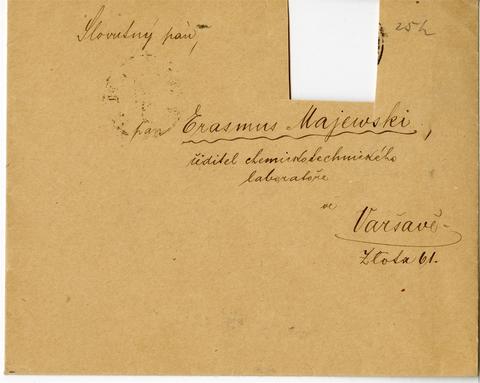 Slovutný pán,
25h
pan Erasmus Majewski,
ředitel chemickotechnického
laboratoře
ve
Varšavě
Złota 61.